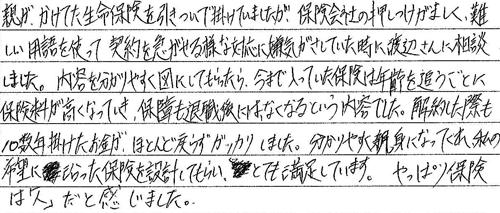 親がかけてた生命保険を引きついで掛けていましたが、保険会社の押しつけがましく、難
しい用語を使って契約を急がせる様な対応に嫌気がさしていた時に渡辺さんに相談
しました。内容を分かりやすく図にしてもらったら、今まで入っていた保険は年齢を追うごとに
保険料が高くなっていき、保障も退職後にはなくなるという内容でした。解約した際も
10数年掛けたお金が、ほとんど戻らずガッカリしました。分かりやすく親身になってくれ、私の
希望にそった保険を設計してもらい、とても満足しています。やっぱり保険
は「人」だと感じました。